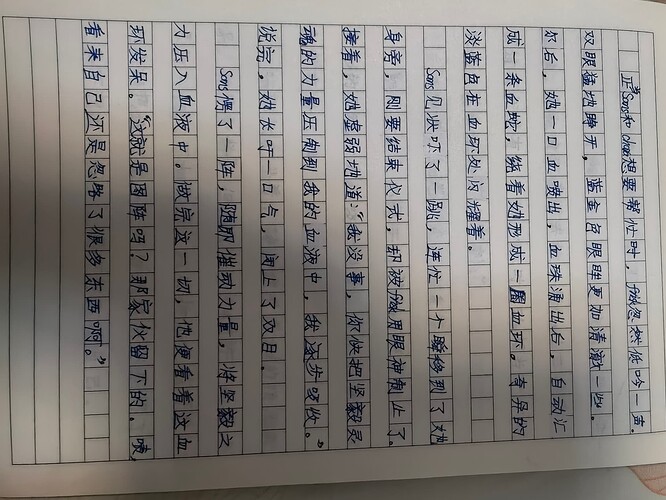 正当Sans和chara想要帮忙时，frisk忽然低吟一声。
双眼猛地睁开，蓝金色眼眸更加清澈一些。
尔后，她一口血喷出，血珠涌出后，自动汇
成一条血蛇，绕着她形成一圈血环。奇异的
淡蓝色在血环处闪耀着。
Sans见状吓了一跳，连忙一个瞬移到了她
身旁，刚要结束仪式，却被frisk用眼神制止了。
接着，她虚弱地道：“我没事，你快把坚毅灵
魂的力量压制到我的血液中，我逐步吸收。”
说完。她长吁一口气，闭上了双目。
Sans愣了一阵，随即催动力量，将坚毅之
力压入血液中。做完这一切，他便看着这血
环发呆。“这就是困阵吗？那家伙留下的。唉，
看来自己还是忽略了很多东西啊。”